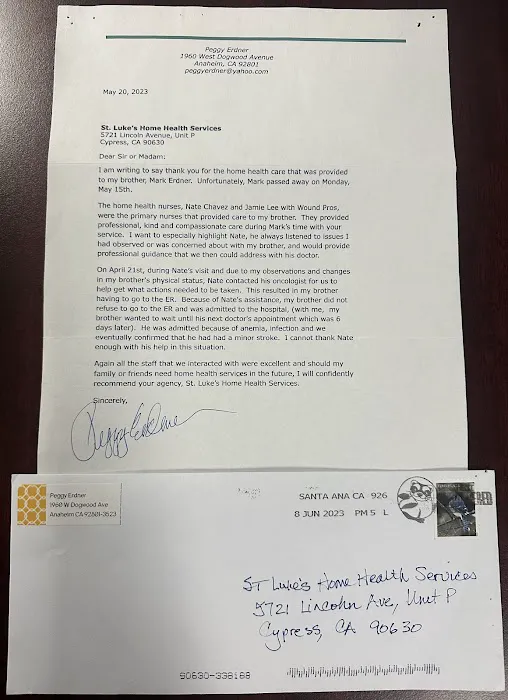 Peggy Erdner
1960 West Dogwood Avenue
Anaheim, CA 92801
peggyerdner@yahoo.com
May 20, 2023
St. Luke's Home Health Services
5721 Lincoln Avenue, Unit P
Cypress, CA 90630
Dear Sir or Madam:
I am writing to say thank you for the home health care that was provided
to my brother, Mark Erdner. Unfortunately, Mark passed away on Monday,
May 15th.
The home health nurses, Nate Chavez and Jamie Lee with Wound Pros,
were the primary nurses that provided care to my brother. They provided
professional, kind and compassionate care during Mark's time with your
service. I want to especially highlight Nate, he always listened to issues I
had observed or was concerned about with my brother, and would provide
professional guidance that we then could address with his doctor.
On April 21st, during Nate's visit and due to my observations and changes
in my brother's physical status, Nate contacted his oncologist for us to
help get what actions needed to be taken. This resulted in my brother
having to go to the ER. Because of Nate's assistance, my brother did not
refuse to go to the ER and was admitted to the hospital, (with me, my
brother wanted to wait until his next doctor's appointment which was 6
days later). He was admitted because of anemia, infection and we
eventually confirmed that he had had a minor stroke. I cannot thank Nate
enough with his help in this situation.
Again all the staff that we interacted with were excellent and should my
family or friends need home health services in the future, I will confidently
recommend your agency, St. Luke's Home Health Services.
Sincerely,
Peggy Erdner
Peggy Erdner
1960 W Dogwood Ave
Anaheim CA 92801-3523
SANTA ANA CA 926
8 JUN 2023 PM 5 L
ST Luke's Home Health Services
5721 Lincoln Ave, Unit P
Cypress, CA 90630
90630-338168